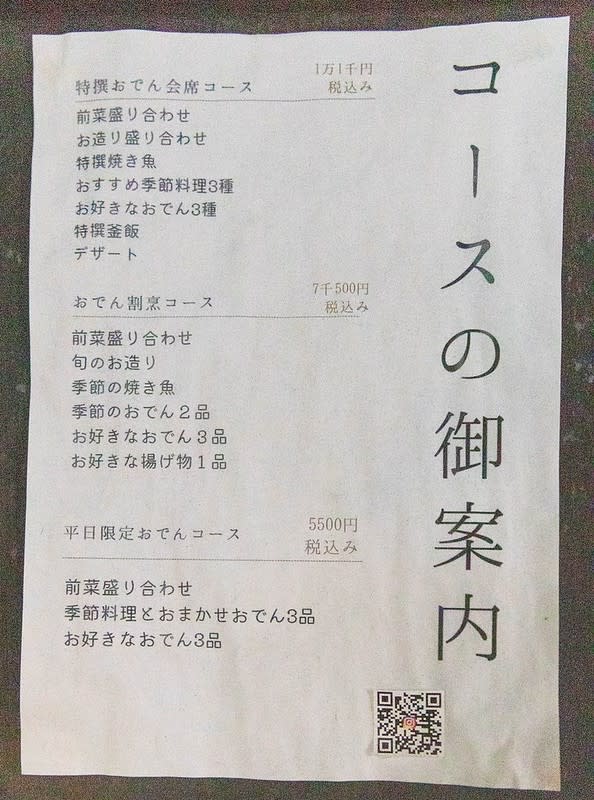 コースの御案内
特撰おでん会席コース
1万1千円
税込み
前菜盛り合わせ
お造り盛り合わせ
特撰焼き魚
おすすめ季節料理3種
お好きなおでん3種
特撰釜飯
デザート
おでん割烹コース
7千500円
税込み
前菜盛り合わせ
旬のお造り
季節の焼き魚
季節のおでん２品
お好きなおでん３品
お好きな揚げ物１品
平日限定おでんコース
5500円
税込み
前菜盛り合わせ
季節料理とおまかせおでん3品
お好きなおでん3品